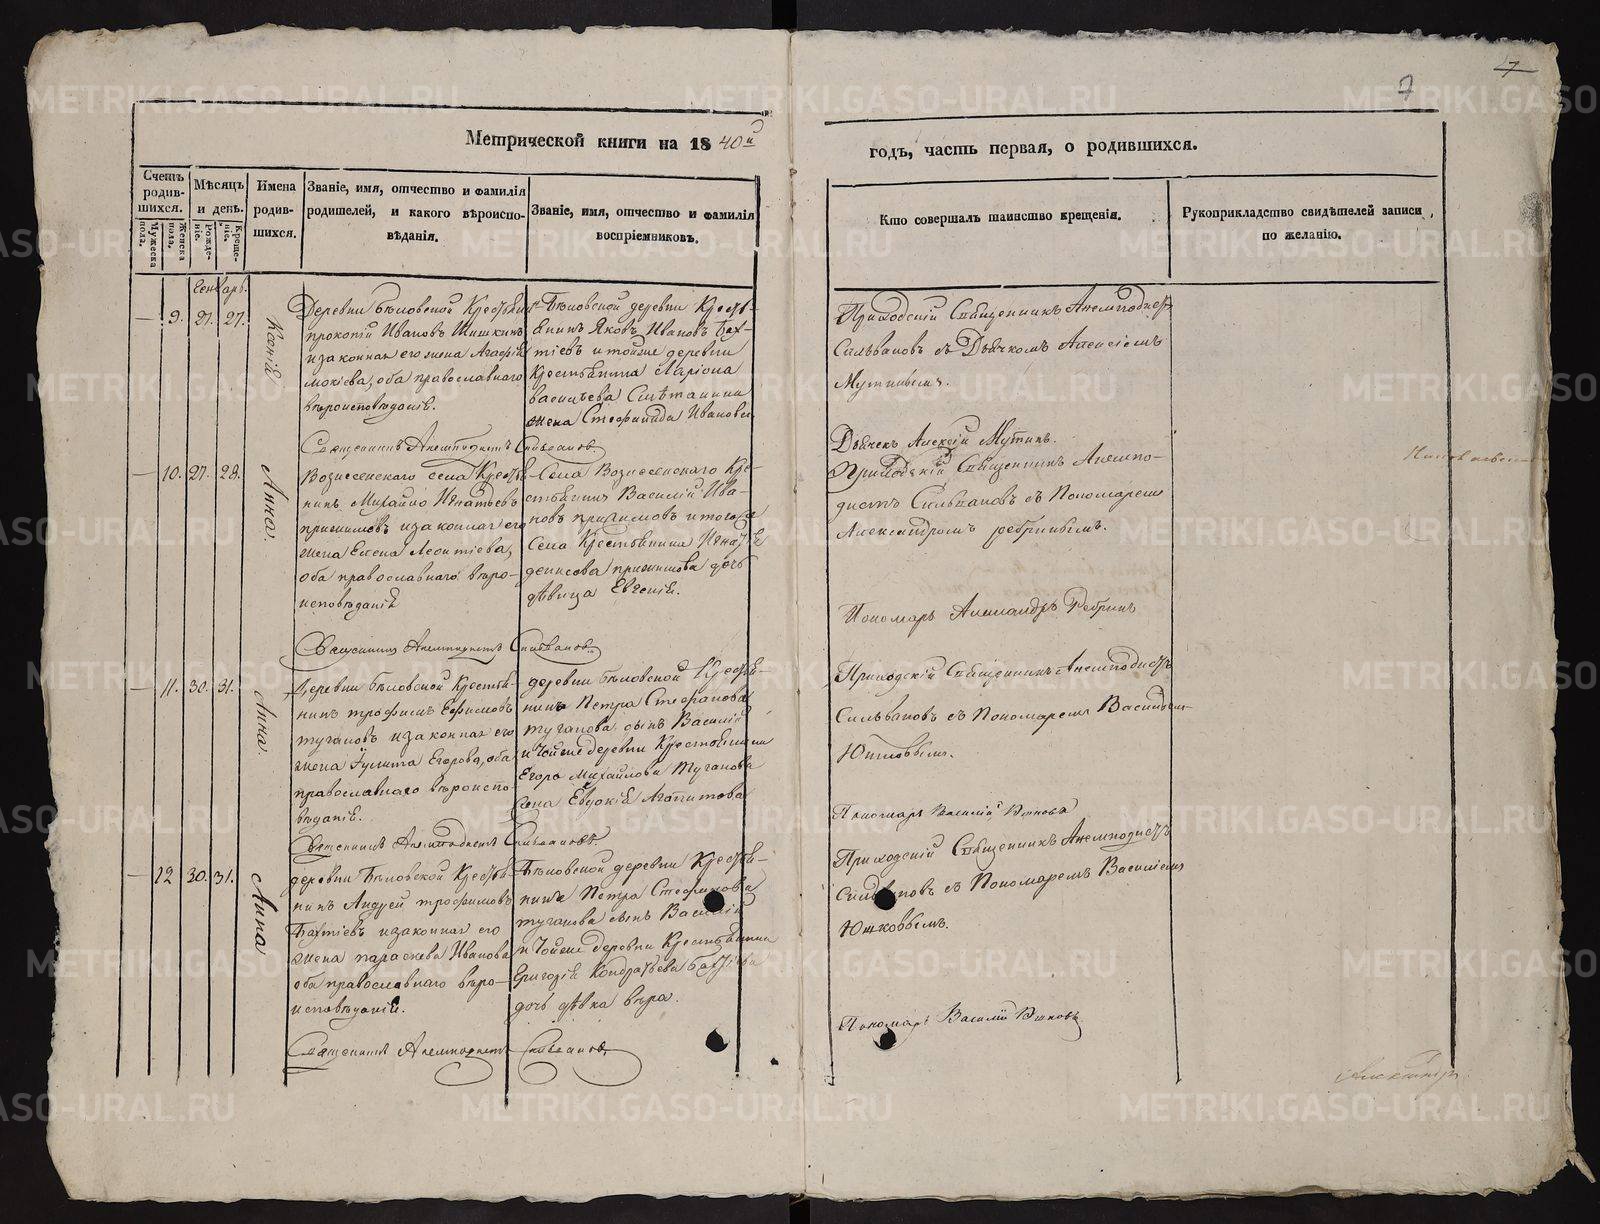 7
7
Метрической книги на 1840й
годъ, часть первая, о родившихся.
Счетъ родившихся.
Мужеска пола.
Женска пола.
Мѣсяцъ и день.
Рожденіе.
Крещеніе.
Имена родившихся.
Званіе, имя, отчество и фамилія родителей, и какого вѣроисповѣданія.
Званіе, имя, отчество и фамилія воспріемниковъ.
Кто совершалъ таинство крещенія.
Рукоприкладство свидѣтелей записи по желанію.
Генварь.
— 9. 21. 27.
Ксенія
Деревни Бѣловской Крестьянинъ
прокопій Ивановъ Шишкинъ
и законная его жена Агафія
мокіева, оба православнаго
вѣроисповѣданія.
Бѣловской деревни Кресть-
янинъ Яковъ Ивановъ Бах-
тіевъ и тойже деревни
Крестьянина Ларіона
васильева Смѣтанина
жена Стефанида Иванова
Приходскій Священникъ Анемподистъ
Сильвановъ съ Дьячкомъ Алексіемъ
Мутинымъ.
Дьячекъ Алексій Мутинъ.
Священникъ Анемподистъ Сильвановъ
— 10. 27. 28.
Анна.
Вознесенскаго села Кресть-
нинъ Михайло Игнатьевъ
и законная его
жена Елена Леонтіева,
оба православнаго вѣро-
исповѣданія
Села Вознесенскаго Кре-
стьянинъ Василій Ива-
новъ и тогоже
Села Крестьянина
денисова дочь
дѣвица Евгенія.
Приходскій Священникъ Анемпо-
дистъ Сильвановъ съ Пономаремъ
Александромъ ребринымъ.
Пономарь Александръ Ребринъ
Священникъ Анемподистъ Сильвановъ
— 11. 30. 31.
Анна.
Деревни Бѣловской Крестья-
нинъ трофимъ Ефимовъ
тугановъ и законная его
жена Іулита Егорова, оба
православнаго вѣроиспо-
вѣданія.
деревни Бѣловской Крестья-
нина Петра Стефанова
туганова сынъ Василій
и тойже деревни Крестьянина
Егора Михайлова Туганова
жена Евдокія Агапитова
Приходскій Священникъ Анемподистъ
Сильвановъ съ Пономаремъ Василіемъ
Юшковымъ.
Пономарь Василій Юшковъ
Священникъ Анемподистъ Сильвановъ.
— 12 30. 31.
Анна
деревни Бѣловской Крестья-
нинъ Андрей трофимовъ
Бахтіевъ и законная его
жена параскева Иванова
оба православнаго вѣро-
исповѣданія.
Бѣловской деревни Крестья-
нина Петра Стефанова
туганова сынъ Василій
и тойже деревни Крестьянина
Григорія Кондратьева Бахтіева
дочь дѣвка вѣра.
Приходскій Священникъ Анемподистъ
Сильвановъ съ Пономаремъ Василіемъ
Юшковымъ.
Пономарь Василій Юшковъ
Священникъ Анемподистъ Сильвановъ
METRIKI.GASO-URAL.RU